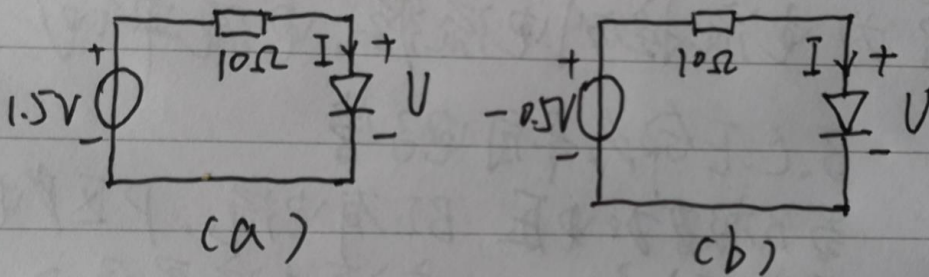 + 10Ω I + 1.5V U - -
(a)
+ 10Ω I + -0.5V U - -
(b)